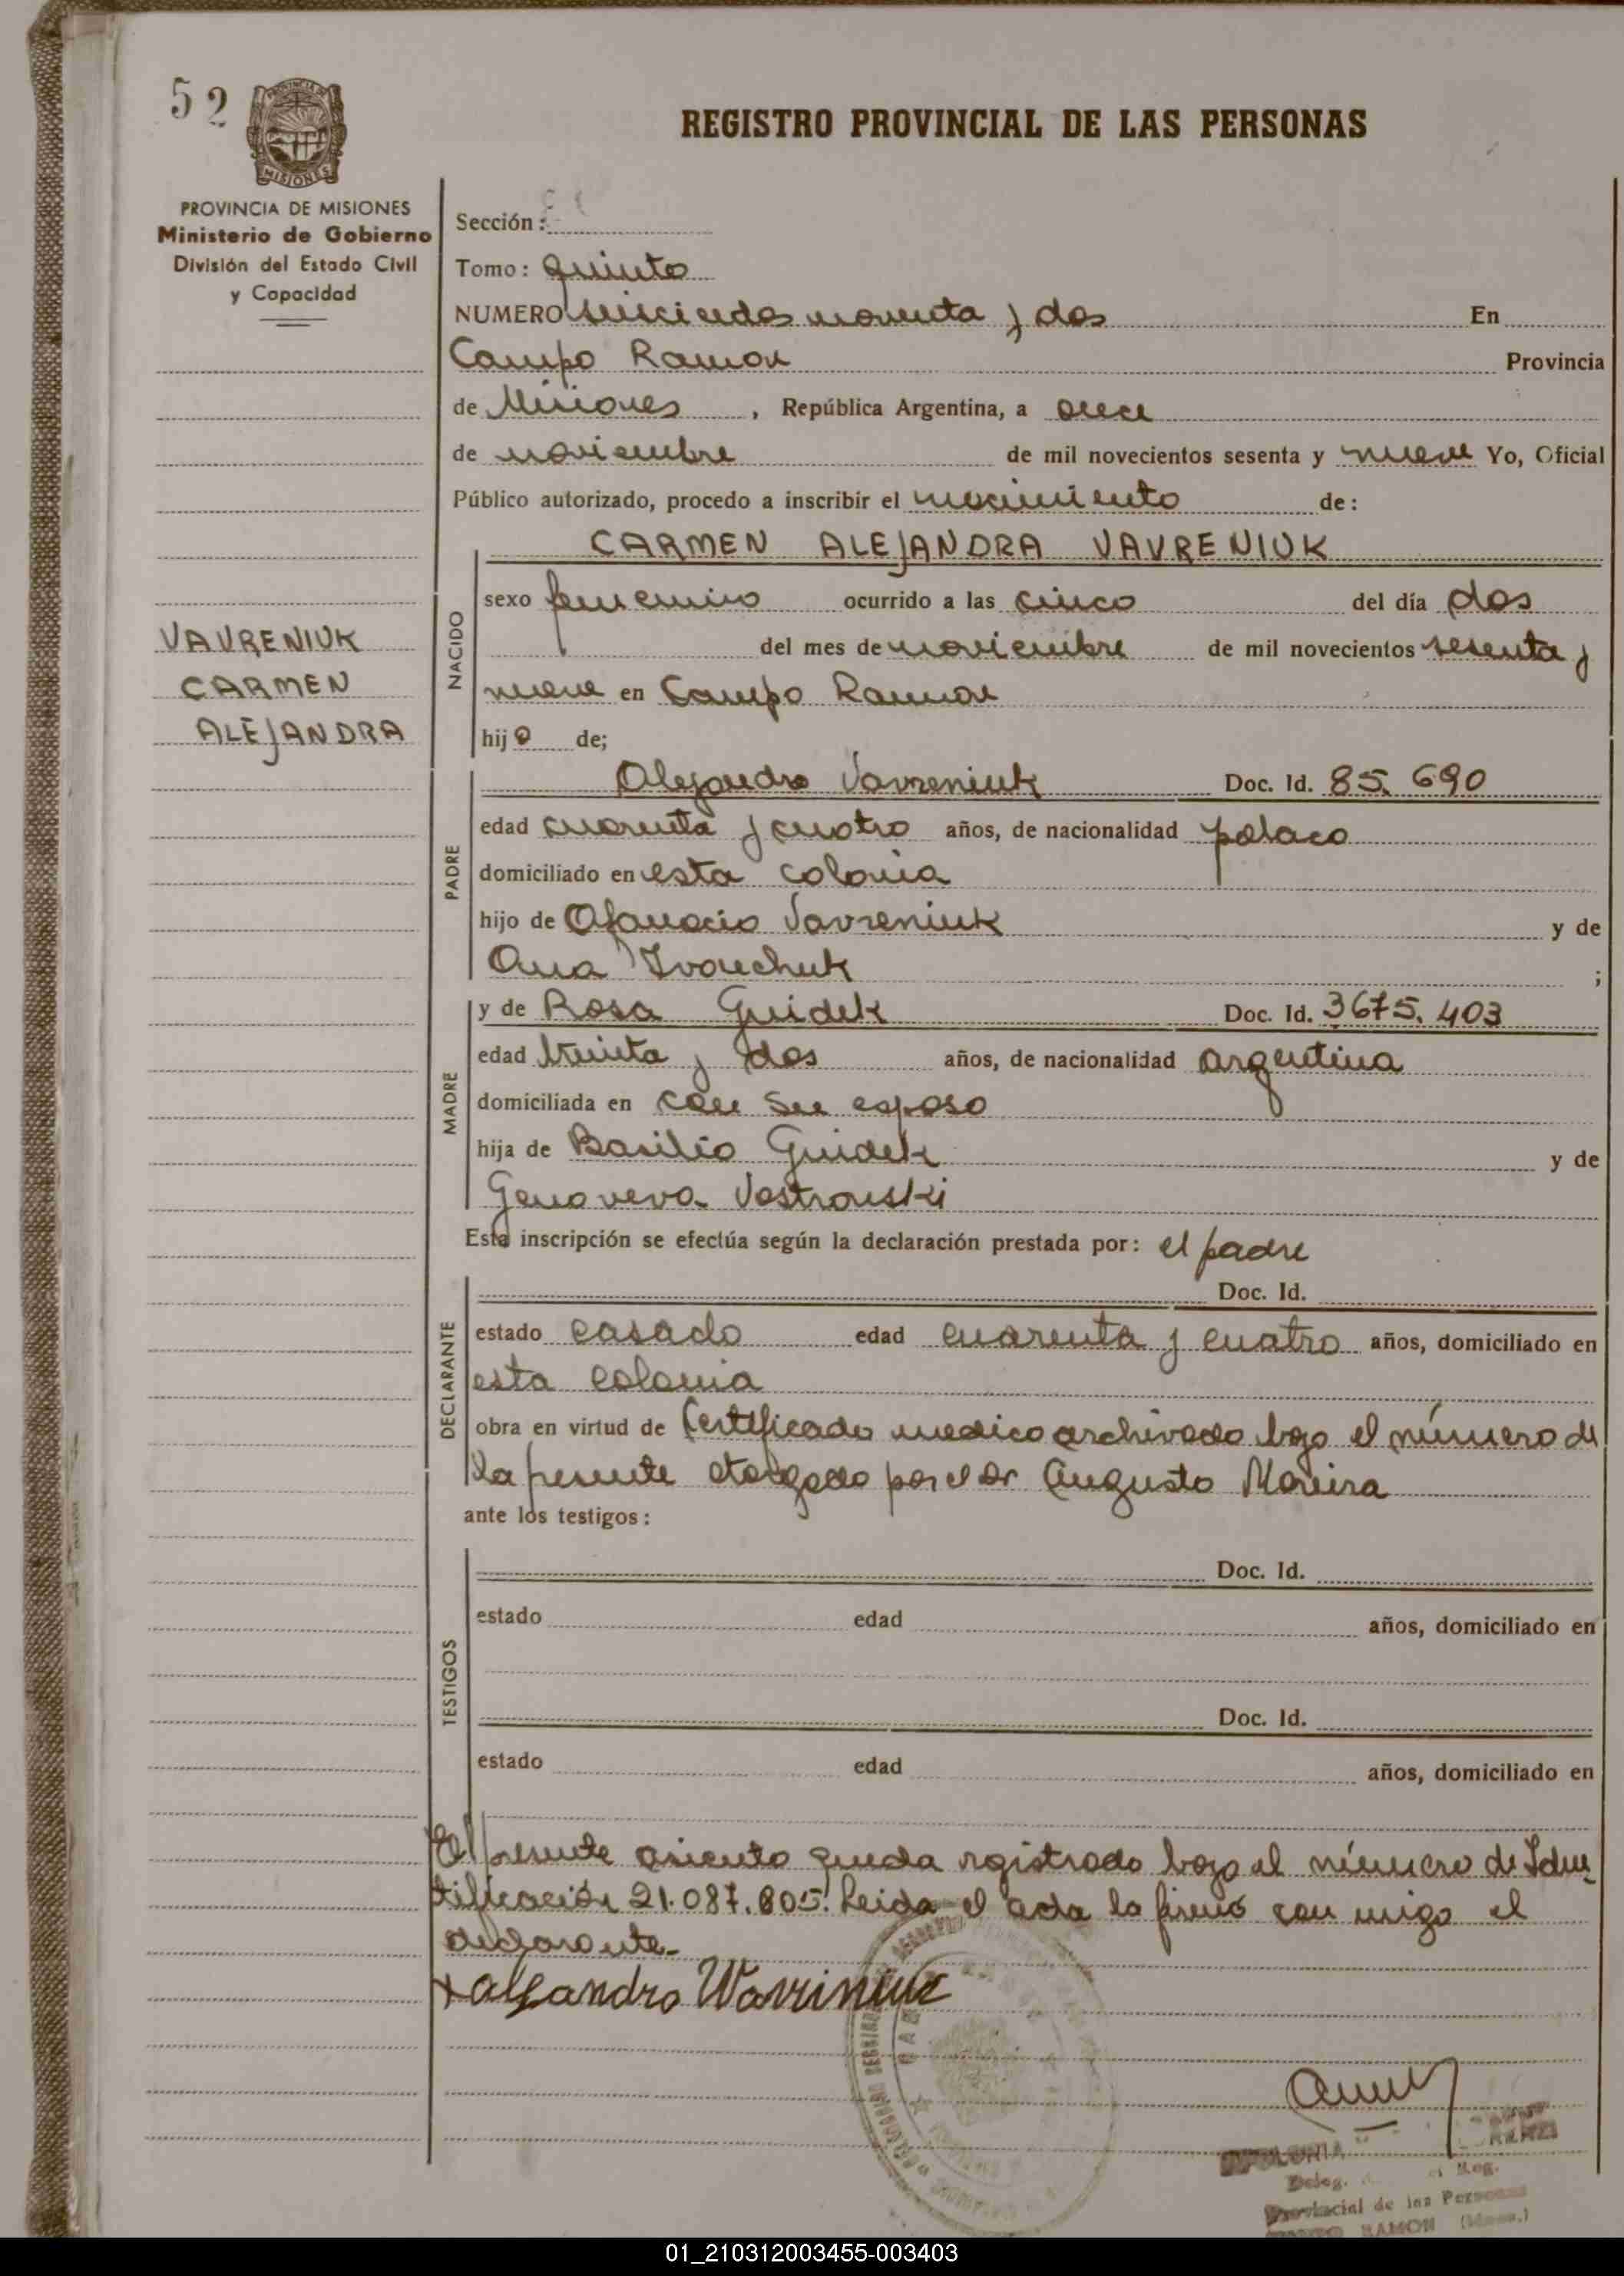 52
REGISTRO PROVINCIAL DE LAS PERSONAS
PROVINCIA DE MISIONES
Ministerio de Gobierno
División del Estado Civil
y Capacidad
Sección:
Tomo: quinto
NUMERO seiscientos noventa y dos En
Campo Ramon Provincia
de Misiones, República Argentina, a once
de noviembre de mil novecientos sesenta y nueve Yo, Oficial
Público autorizado, procedo a inscribir el nacimiento de:
CARMEN ALEJANDRA VAVRENIUK
VAVRENIUK
CARMEN
ALEJANDRA
NACIDO
sexo femenino ocurrido a las cinco del día dos
del mes de noviembre de mil novecientos sesenta y
nueve en Campo Ramon
hija de;
PADRE
Alejandro Vavreniuk Doc. Id. 85.690
edad cuarenta y cuatro años, de nacionalidad polaco
domiciliado en esta colonia
hijo de Afanacio Vavreniuk y de
Ana Ivanchuk ;
MADRE
y de Rosa Guidek Doc. Id. 3675.403
edad treinta y dos años, de nacionalidad argentina
domiciliada en con su esposo
hija de Basilio Guidek y de
Genoveva Vostrouski
Esta inscripción se efectúa según la declaración prestada por: el padre
DECLARANTE
Doc. Id.
estado casado edad cuarenta y cuatro años, domiciliado en
esta colonia
obra en virtud de Certificado medico archivado bajo el número de
la presente otorgado por el Dr Augusto Moreira
ante los testigos:
TESTIGOS
Doc. Id.
estado edad años, domiciliado en
Doc. Id.
estado edad años, domiciliado en
El presente asiento queda registrado bajo el número de Iden
tificación 21.087.805. Leida el acta la firmó con migo el
declarante-
x alejandro Wavriniuc
Deleg. Reg.
Provincial de las Personas
RAMON (Mnes.)
01_210312003455-003403